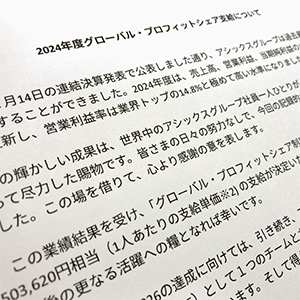 2024年度グローバル・プロフィットシェア支給について
月14日の連結決算発表で公表しました通り、アシックスグループは過去最
することができました。2024年度は、売上高、営業利益、当期純利益の
新し、営業利益率は業界トップの14.8%と極めて高い水準になりまし
の輝かしい成果は、世界中のアシックスグループ社員一人ひとりが
って尽力した賜物です。皆さまの日々の努力なしで、今回の記録的
した。この場を借りて、心より感謝の意を表します。
この業績結果を受け、「グローバル・プロフィットシェア制
503,620円相当（1人あたりの支給単価※2）の支給が決定い
後の更なる活躍への糧となれば幸いです。
026の達成に向けては、引き続き、
）として1つのチームと
ます。そして